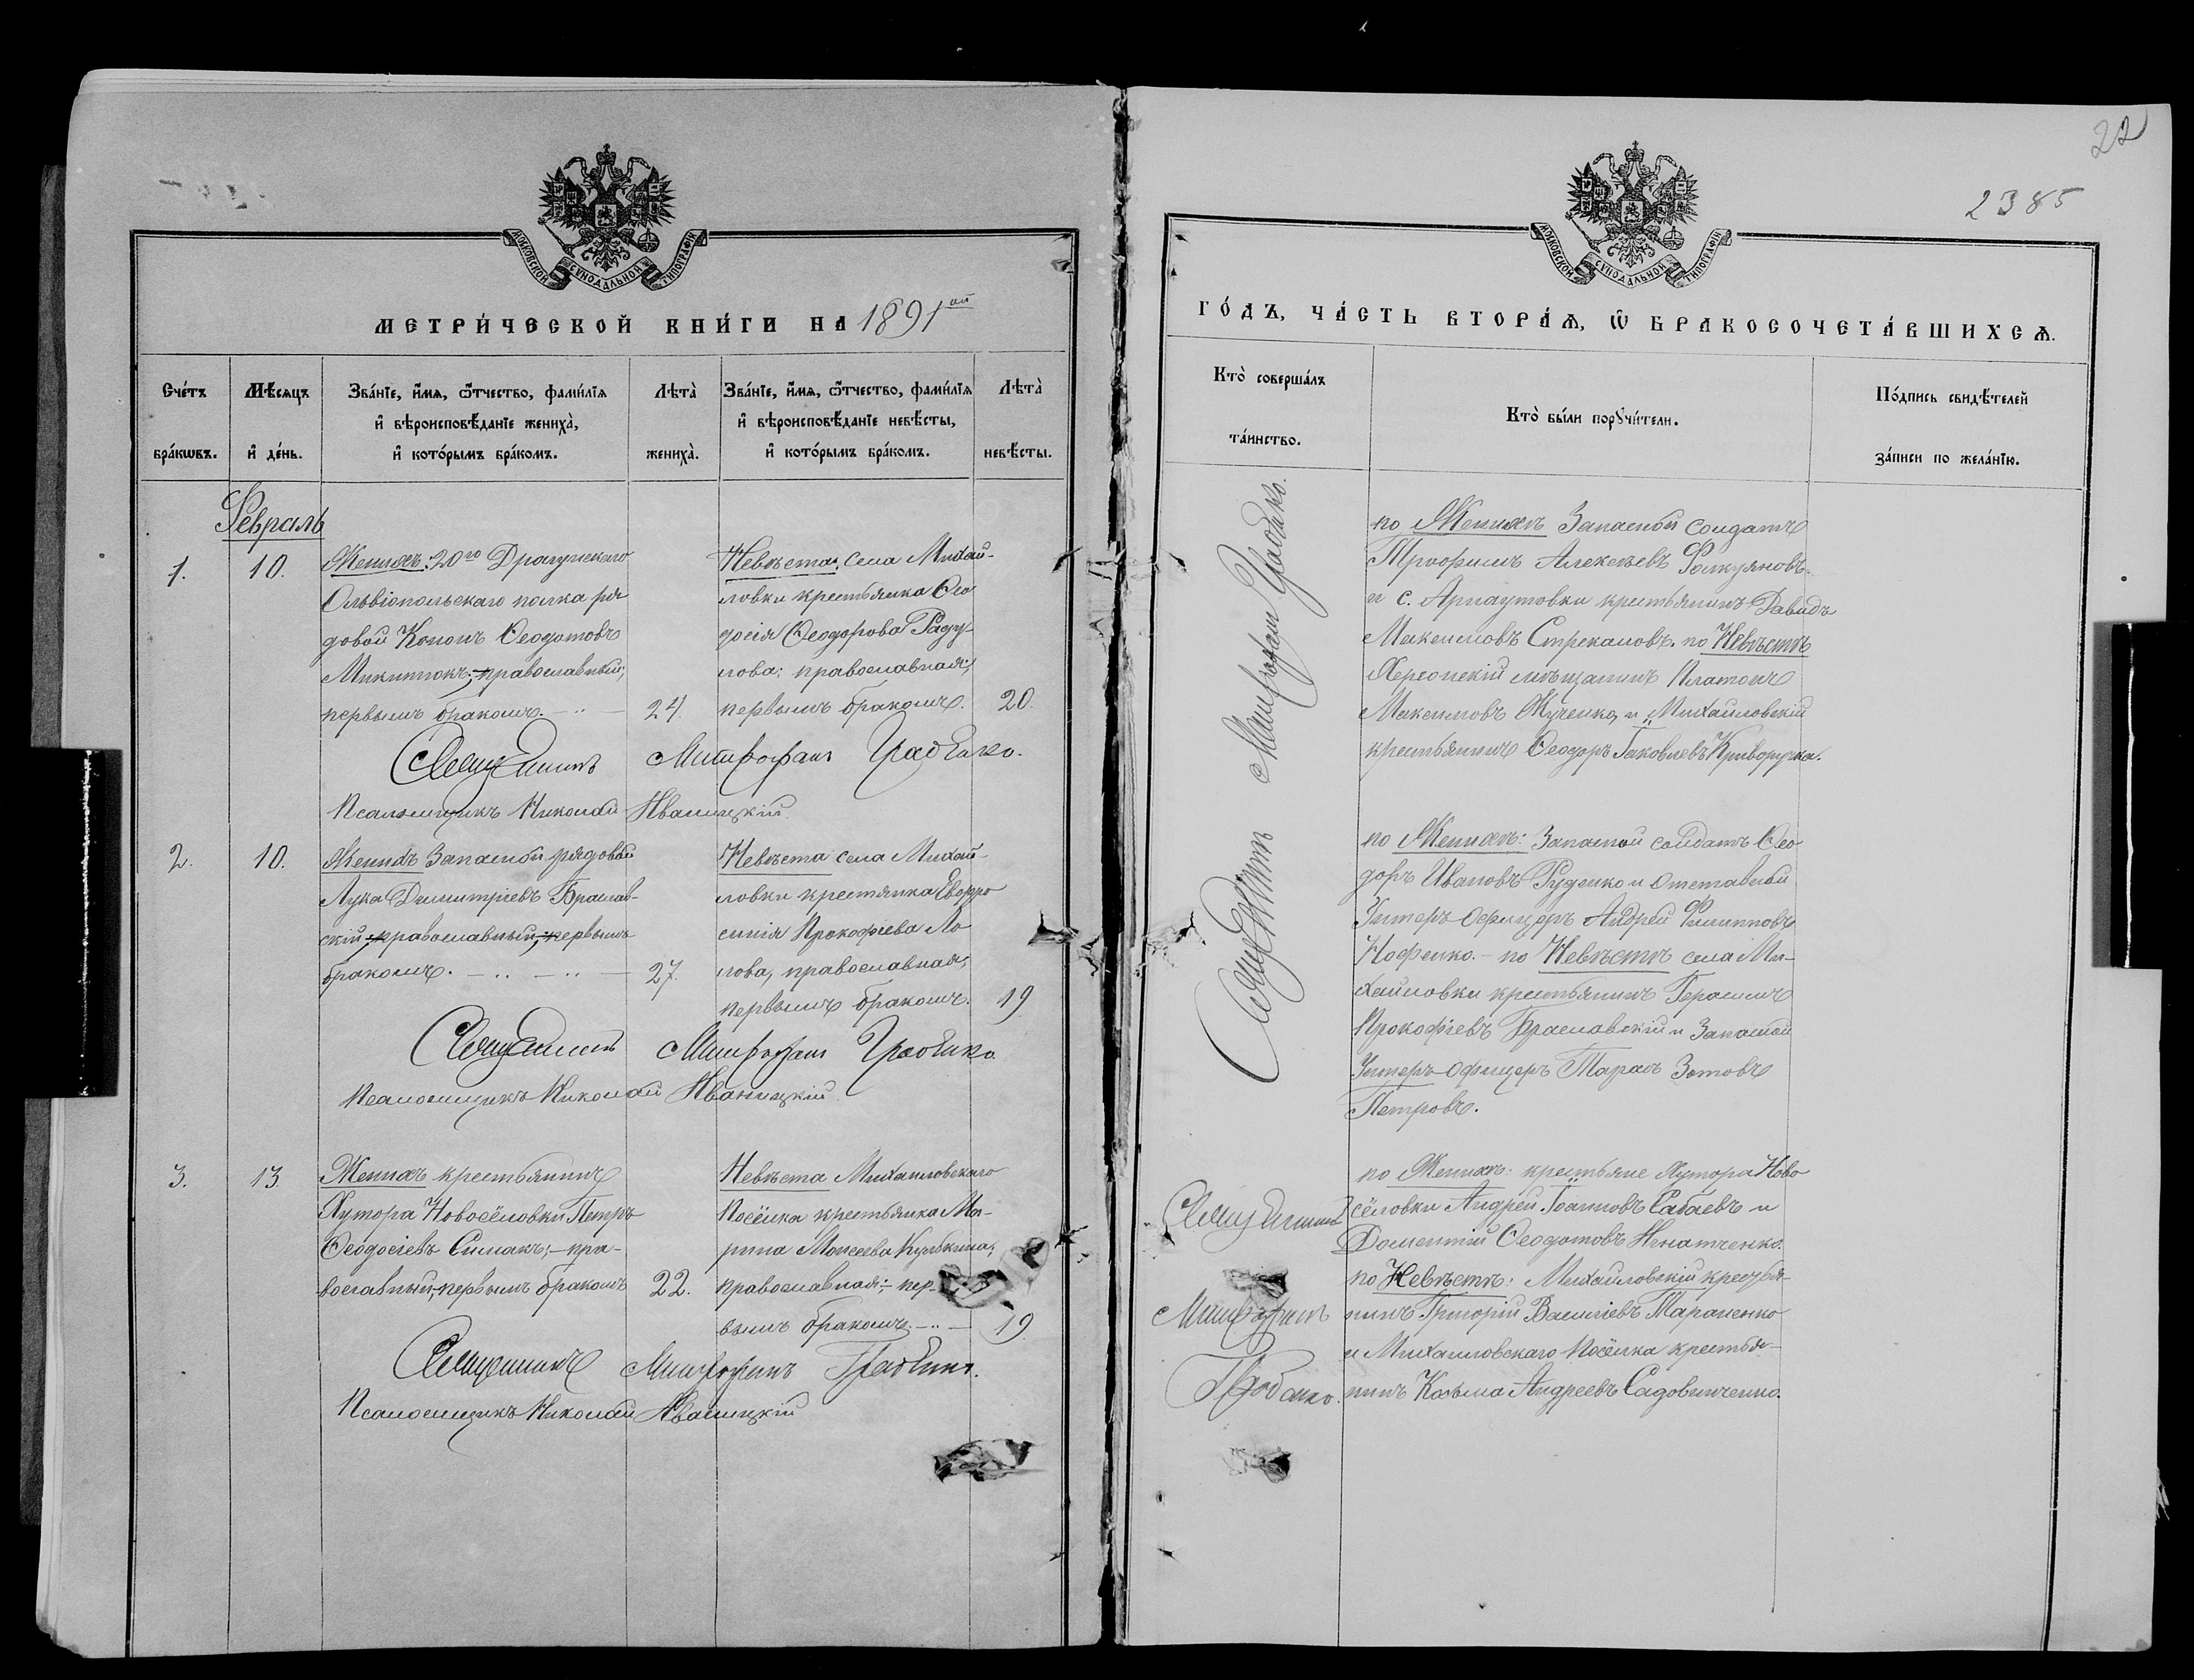 22
2385
МОСКОВСКОЙ СѴНОДАЛЬНОЙ ТИПОГРАФІИ
МЕТРИ́ЧЕСКОЙ КНИ́ГИ НА 1891ый
Сче́тъ бра́кѡвъ.
Мѣ́сяцъ и҆ де́нь.
Зва́нїе, и҆́мѧ, ѻ҆́тчество, фами́лїѧ
и҆ вѣроисповѣ́данїе жениха̀,
и҆ кото́рымъ бра́комъ.
Лѣта̀ жениха̀.
Зва́нїе, и҆́мѧ, ѻ҆́тчество, фами́лїѧ
и҆ вѣроисповѣ́данїе невѣ́сты,
и҆ кото́рымъ бра́комъ.
Лѣта̀ невѣ́сты.
Февраль
1.
10.
Женихъ: 20го Драгунскаго
Ольвіопольскаго полка ря
довой Кононъ Ѳеодотовъ
Микитюкъ; православный;
первымъ бракомъ.
24.
Невѣста: села Михай-
ловки крестьянка Ѳео
досія Ѳеодорова Раду-
лова; православная;
первымъ бракомъ.
20.
Священникъ Митрофанъ Грабенко.
Псаломщикъ Николай Иваницкій
2.
10.
Женихъ Запасный рядовой
Лука Димитріевъ Браслав-
скій, православный, первымъ
бракомъ.
27.
Невѣста села Михай-
ловки крестянка Евфро
синія Прокофіева Ло
лова, православная,
первымъ бракомъ.
19
Священникъ Митрофанъ Грабенко
Псаломщикъ Николай Иваницкій
3.
13.
Женихъ крестьянинъ
Хутора Новосёловки Петръ
Ѳеодосіевъ Симакъ; пра-
вославный, первымъ бракомъ
22.
Невѣста Михаиловскаго
Посёлка крестьянка Ма-
рина Моисеева Кулбкина;
православная; пер-
вымъ бракомъ.
19
Священникъ Митрофанъ Грабенко.
Псаломщикъ Николай Иваницкій
МОСКОВСКОЙ СѴНОДАЛЬНОЙ ТИПОГРАФІИ
ГО́ДЪ, ЧА́СТЬ ВТОРА́Ѧ, Ѡ҆ БРАКОСОЧЕТА́ВШИХСѦ.
Кто̀ соверша́лъ та́инство.
Кто̀ бы́ли порꙋчи́тели.
По́дпись свидѣ́телей
за́писи по жела́нїю.
Священникъ Митрофанъ Грабенко.
по Женихѣ Запасный солдатъ
Трофимъ Алексѣевъ
и с. Арнаутовки крестьянинъ Давидъ
Максимовъ Стрекаловъ. по Невѣстѣ
Херсонскій мѣщанинъ Платонъ
Максимовъ Кученко, и Михайловскій
крестьянинъ Ѳеодоръ Іаковлевъ Криворучка.
по Женихѣ: Запасной солдатъ Ѳео
доръ Ивановъ Руденко и отставной
Унтеръ Офицеръ Андрей Филипповъ
Нофенко. – по Невѣстѣ села Ми-
хайловки крестьянинъ Герасимъ
Прокофіевъ Браславскій и Запасной
Унтеръ-офицеръ Тарасъ Зотовъ
Петровъ.
Священникъ
Митрофанъ
Грабенко.
по Женихѣ: крестьяне Хутора Ново
сёловки Андрей Іоанновъ Сабаевъ и
Дометій Ѳеодотовъ Игнатченко.
по Невѣстѣ: Михайловскій крестья-
нинъ Григорій Василіевъ Тараненко
и Михаиловскаго Посёлка крестья-
нинъ Козьма Андреевъ Садовниченко.